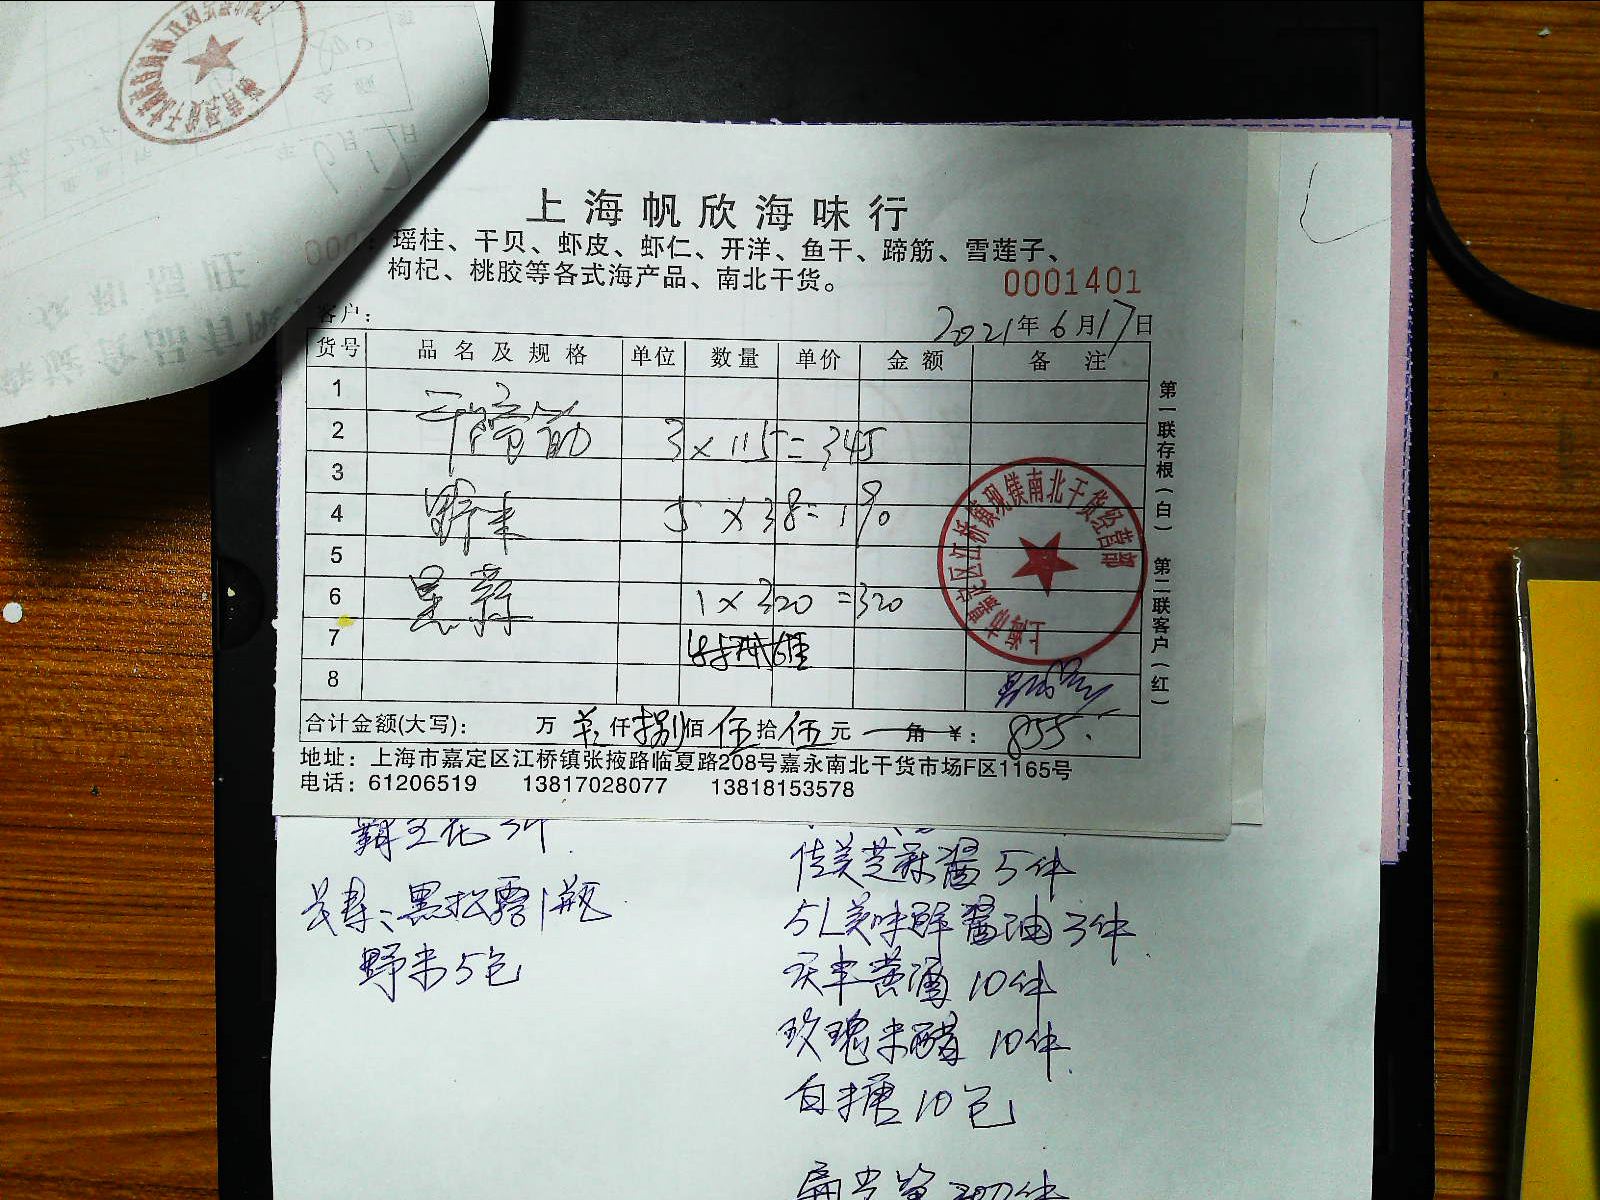 上海帆欣海味行
瑶柱、干贝、虾皮、虾仁、开洋、鱼干、蹄筋、雪莲子、
枸杞、桃胶等各式海产品、南北干货。
0001401
客户：
2021年6月17日
货号 品名及规格 单位 数量 单价 金额 备注
1
2 干蹄筋 3×115=345
3
4 野米 5×38=190
5
6 黑蒜 1×320=320
7
8
合计金额(大写)： 万 仟捌佰伍拾伍元 角 ¥：855.
地址：上海市嘉定区江桥镇张掖路临夏路208号嘉永南北干货市场F区1165号
电话：61206519 13817028077 13818153578
第一联存根（白） 第二联客户（红）
上海市嘉定区江桥镇现镁南北干货经营部
霸王花5件
黑松露1瓶
野米5包
佳美芝麻酱5件
5L美味鲜酱油3件
庆丰黄酒10件
玫瑰米醋10件
白糖10包